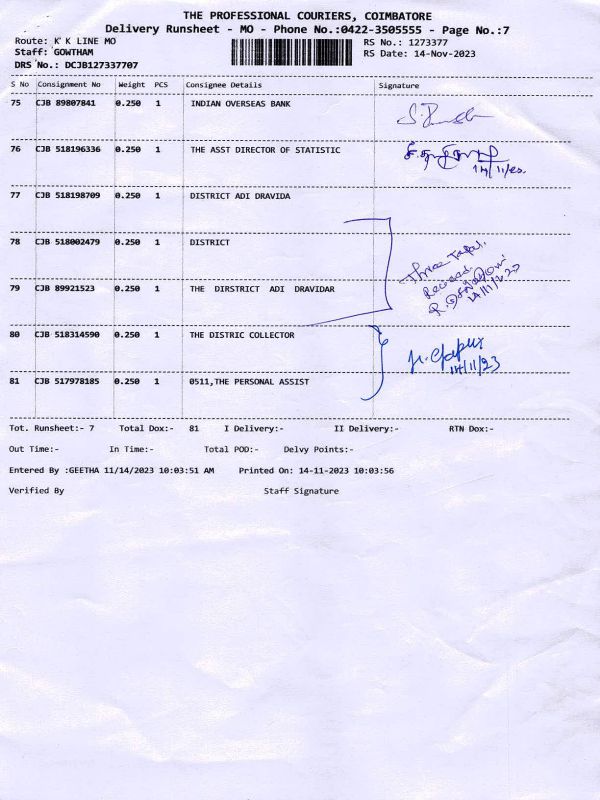 THE PROFESSIONAL COURIERS, COIMBATORE
Delivery Runsheet - MO - Phone No.:0422-3505555 - Page No.:7
Route: K K LINE MO RS No.: 1273377
Staff: GOWTHAM RS Date: 14-Nov-2023
DRS No.: DCJB127337707
S No Consignment No Weight PCS Consignee Details Signature
75 CJB 89807841 0.250 1 INDIAN OVERSEAS BANK
76 CJB 518196336 0.250 1 THE ASST DIRECTOR OF STATISTIC
14/11/23.
77 CJB 518198709 0.250 1 DISTRICT ADI DRAVIDA
78 CJB 518002479 0.250 1 DISTRICT
Three Tapal
Received.
79 CJB 89921523 0.250 1 THE DIRSTRICT ADI DRAVIDAR
14/11/2023
80 CJB 518314590 0.250 1 THE DISTRIC COLLECTOR
14/11/23
81 CJB 517978185 0.250 1 0511,THE PERSONAL ASSIST
Tot. Runsheet:- 7 Total Dox:- 81 I Delivery:- II Delivery:- RTN Dox:-
Out Time:- In Time:- Total POD:- Delvy Points:-
Entered By :GEETHA 11/14/2023 10:03:51 AM Printed On: 14-11-2023 10:03:56
Verified By Staff Signature